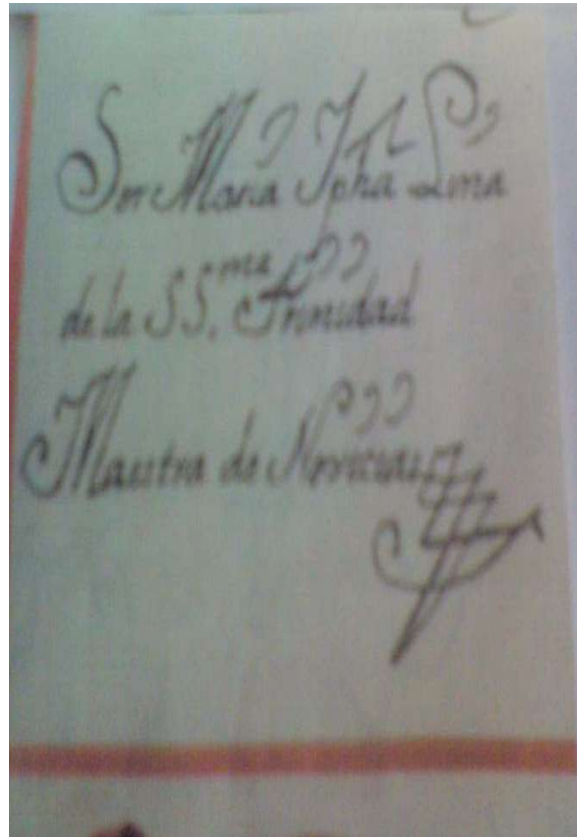 Sor Maria Jpha Lina
de la SS.ma Trinidad
Maestra de Novicias